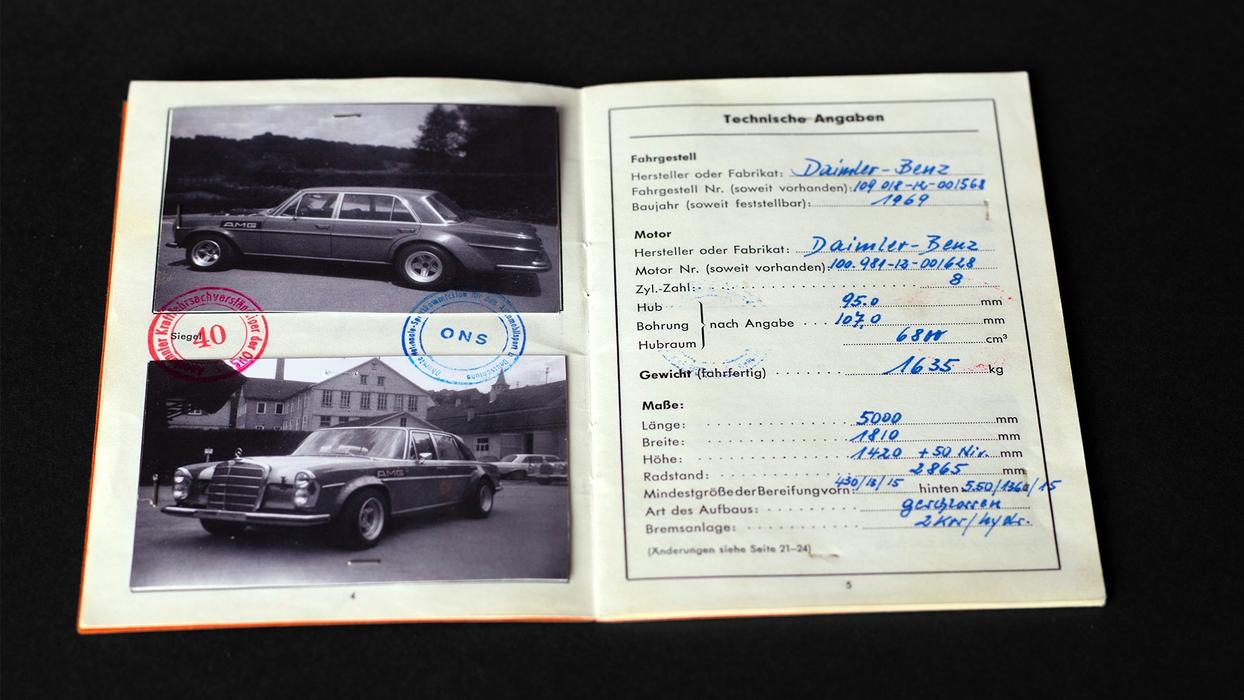 AMG
Anerkannter Kraftfahrsachverständiger der ONS
Siegel
40
ONS
AMG
4
Technische Angaben
Fahrgestell
Hersteller oder Fabrikat: Daimler-Benz
Fahrgestell Nr. (soweit vorhanden): 109 018-12-001568
Baujahr (soweit feststellbar): 1969
Motor
Hersteller oder Fabrikat: Daimler-Benz
Motor Nr. (soweit vorhanden): 100.981-12-001628
Zyl.-Zahl: 8
Hub 95.0 mm
Bohrung nach Angabe 107,0 mm
Hubraum cm³
Gewicht (fahrfertig) 1635 kg
Maße:
Länge: 5000 mm
Breite: 1810 mm
Höhe: 1420 +50 Niv. mm
Radstand: 2865 mm
Mindestgröße der Bereifung vorn: 430/13/15 hinten 5.50/1360/15
Art des Aufbaus: geschlossen
Bremsanlage: 2 Krs/hydr.
(Änderungen siehe Seite 21–24)
5